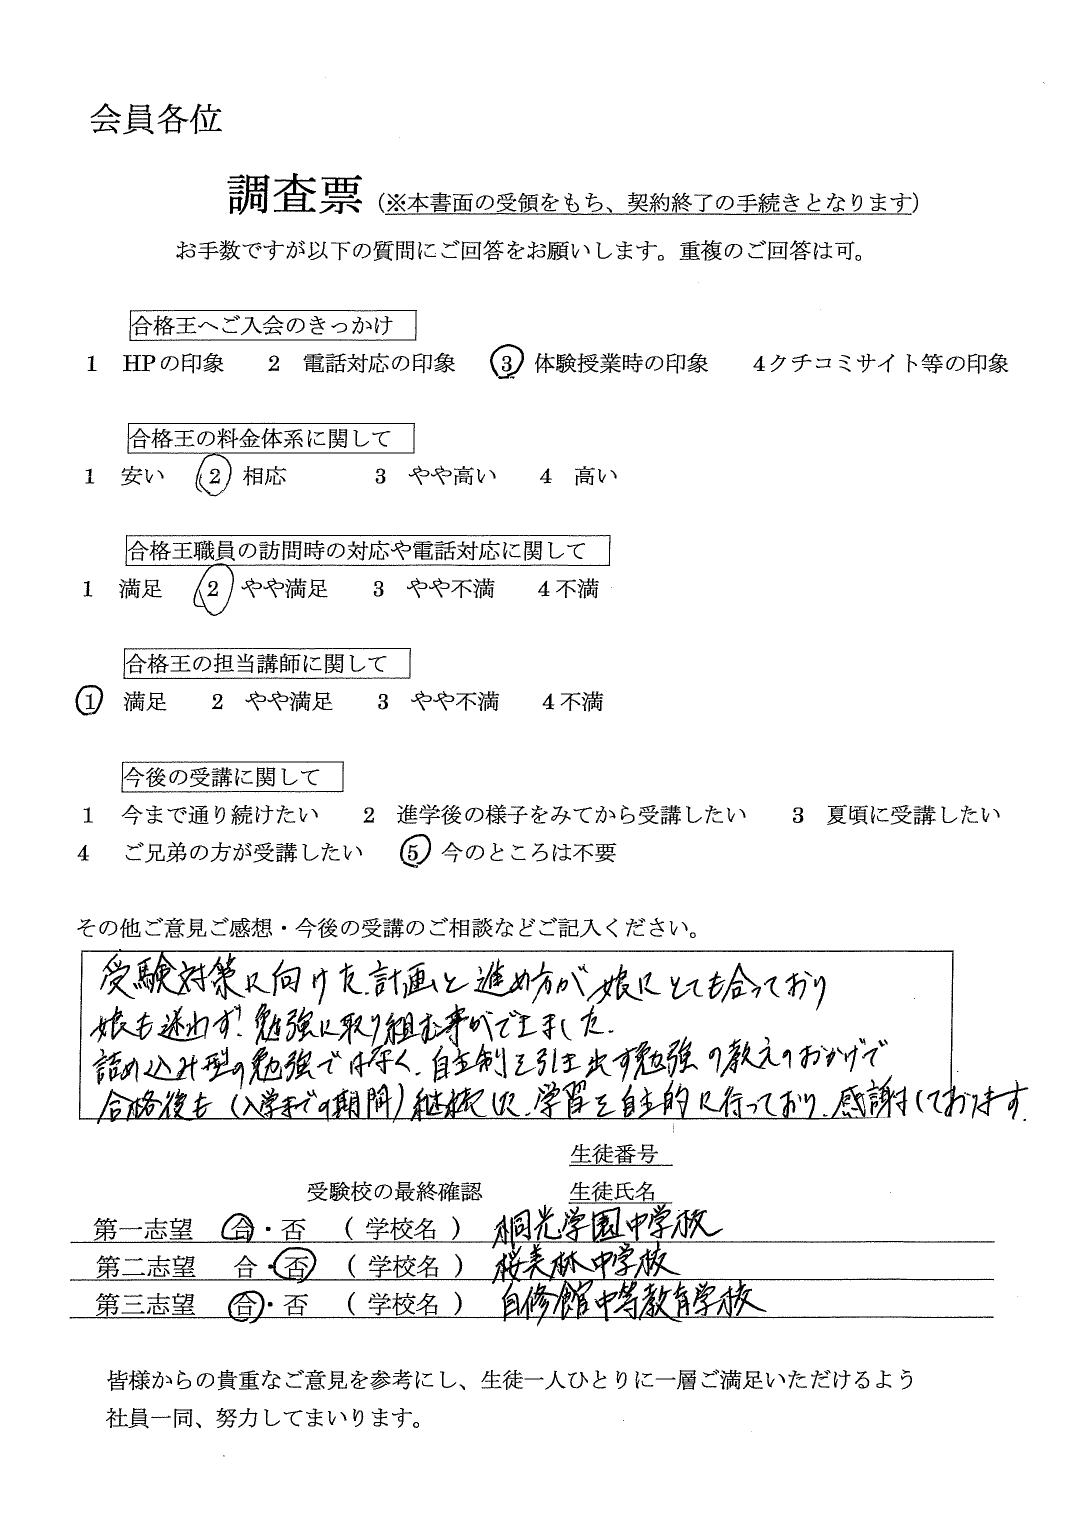 会員各位
調査票（※本書面の受領をもち、契約終了の手続きとなります）
お手数ですが以下の質問にご回答をお願いします。重複のご回答は可。
合格王へご入会のきっかけ
1 HPの印象 2 電話対応の印象 3 体験授業時の印象 4クチコミサイト等の印象
合格王の料金体系に関して
1 安い 2 相応 3 やや高い 4 高い
合格王職員の訪問時の対応や電話対応に関して
1 満足 2 やや満足 3 やや不満 4不満
合格王の担当講師に関して
1 満足 2 やや満足 3 やや不満 4不満
今後の受講に関して
1 今まで通り続けたい 2 進学後の様子をみてから受講したい 3 夏頃に受講したい
4 ご兄弟の方が受講したい 5 今のところは不要
その他ご意見ご感想・今後の受講のご相談などご記入ください。
受験対策に向けた計画と進め方が娘にとても合っており
娘も迷わず、勉強に取り組む事ができました。
詰め込み型の勉強では無く、自主制を引き出す勉強の教えのおかげで
合格後も（入学までの期間）継続した学習を自主的に行っており、感謝しております。
生徒番号
受験校の最終確認 生徒氏名
第一志望 合・否 （学校名） 桐光学園中学校
第二志望 合・否 （学校名） 桜美林中学校
第三志望 合・否 （学校名） 自修館中等教育学校
皆様からの貴重なご意見を参考にし、生徒一人ひとりに一層ご満足いただけるよう
社員一同、努力してまいります。